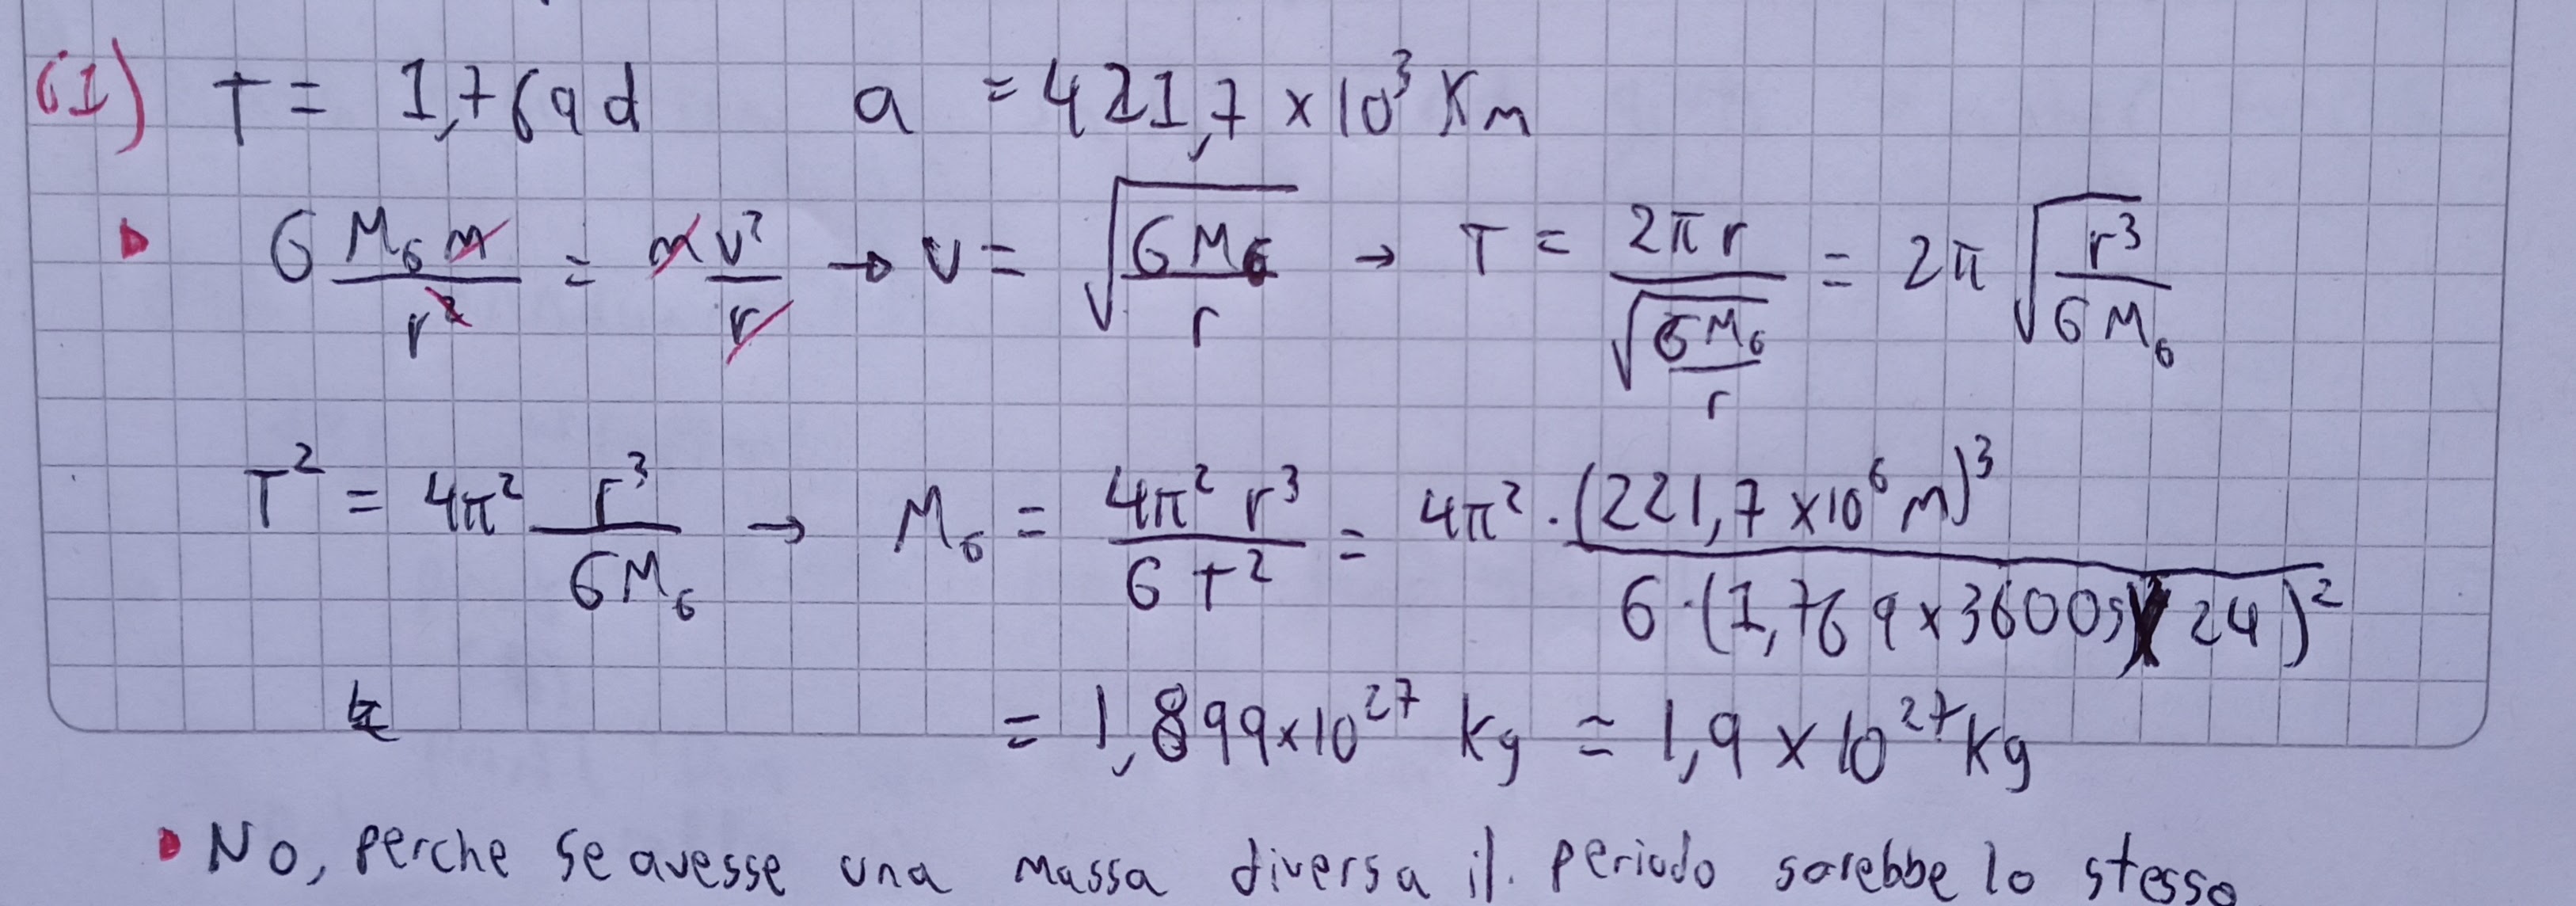 (1) T = 1,769 d a = 421,7 × 10³ Km
G M_G m / r² = m v² / r → v = √(G M_G / r) → T = 2π r / √(G M_G / r) = 2π √(r³ / G M_G)
T² = 4π² r³ / G M_G → M_G = 4π² r³ / G T² = 4π² · (221,7 × 10⁶ m)³ / G · (1,769 × 3600s 24)²
= 1,899 × 10²⁷ kg ≃ 1,9 × 10²⁷ kg
No, perche se avesse una massa diversa il periodo sarebbe lo stesso